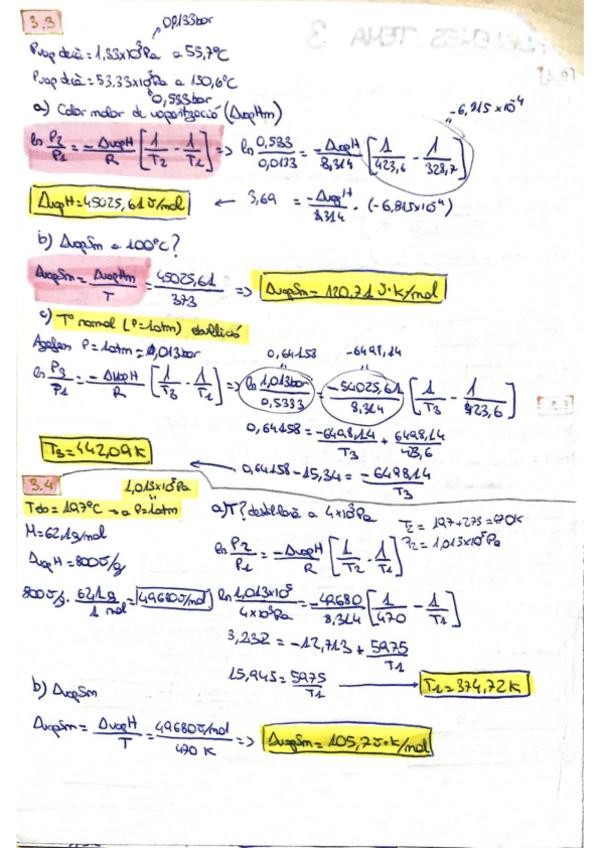 3.3
0,0133bar
Pvap decà = 1,33x10³Pa a 55,7ºC
Pvap decà = 53,33x10³Pa a 150,6ºC
0,533bar
a) Calor molar de vaporització (ΔvapHm)
-6,815x10⁻⁴
ln P2/P1 = -ΔvapH/R [1/T2 - 1/T1] => ln 0,533/0,0133 = -ΔvapH/8,314 [1/423,6 - 1/328,7]
ΔvapH = 45025,61 J/mol ← 3,69 = -ΔvapH/8,314 · (-6,815x10⁻⁴)
b) ΔvapSm a 100ºC?
ΔvapSm = ΔvapHm/T = 45025,61/373 => ΔvapSm = 120,71 J·K/mol
c) Tº normal (P=1atm) d'ebullició
Agafem P=1atm = 1,013bar
0,64158 -6498,14
ln P3/P1 = -ΔvapH/R [1/T3 - 1/T1] => ln 1,013bar/0,5333 = -54025,61/8,314 [1/T3 - 1/423,6]
0,64158 = -6498,14/T3 + 6498,14/423,6
T3 = 442,09K ← 0,64158 - 15,34 = -6498,14/T3
3.4
1,013x10⁵Pa
Teb = 197ºC → a P=1atm
a) T? destil·larà a 4x10³Pa
T2 = 197+273 = 470K
P2 = 1,013x10⁵Pa
M = 62,1g/mol
ΔvapH = 800J/g
ln P2/P1 = -ΔvapH/R [1/T2 - 1/T1]
800J/g · 62,1g/1 mol = 49680J/mol
ln 1,013x10⁵/4x10³ = -49680/8,314 [1/470 - 1/T1]
3,232 = -12,713 + 5975/T1
15,945 = 5975/T1 → T1 = 374,72K
b) ΔvapSm
ΔvapSm = ΔvapH/T = 49680J/mol/470 K => ΔvapSm = 105,7J·K/mol